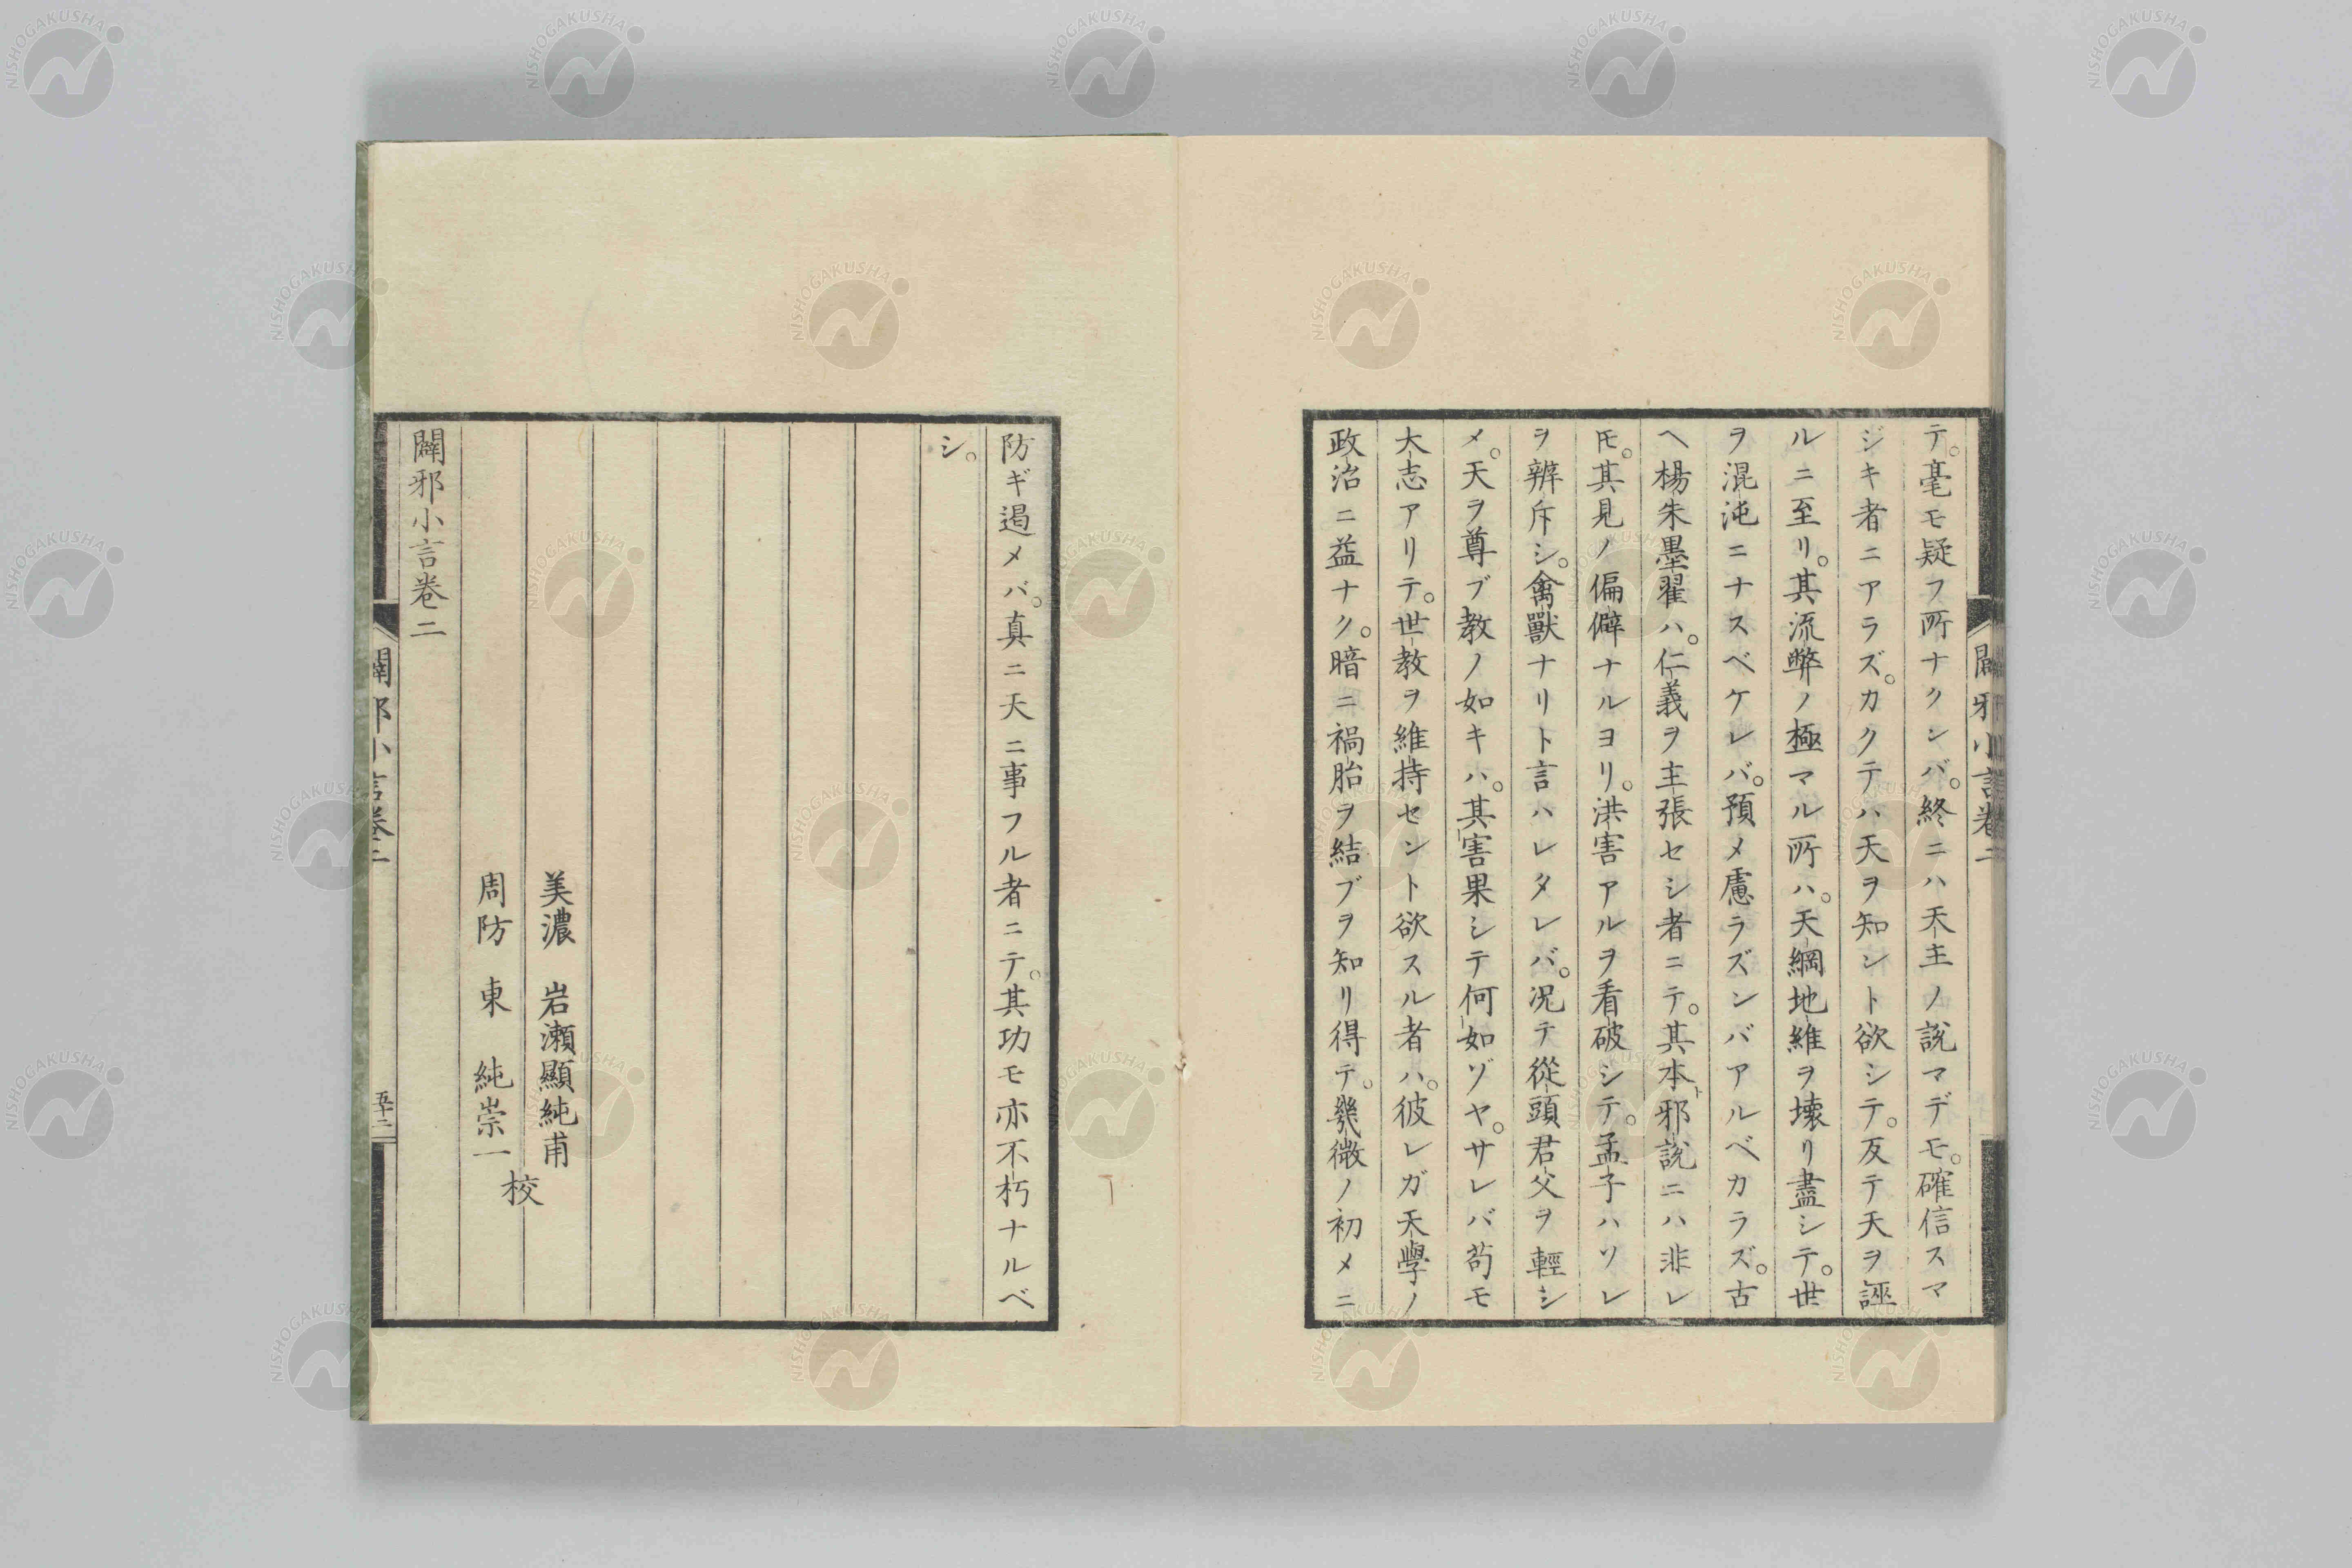 テ。毫モ疑フ所ナクンバ。終ニハ天主ノ說マデモ。確信スマ
ジキ者ニアラズ。カクテハ天ヲ知ント欲シテ。反テ天ヲ誣
ルニ至リ。其流弊ノ極マル所ハ。天綱地維ヲ壞リ盡シテ。世
ヲ混沌ニナスベケレバ。預メ慮ラズンバアルベカラズ。古
ヘ楊朱墨翟ハ。仁義ヲ主張セシ者ニテ。其本ト邪說ニハ非レ
𪜈。其見ノ偏僻ナルヨリ。洪害アルヲ看破シテ。孟子ハソレ
ヲ辨斥シ。禽獸ナリト言ハレタレバ。況テ從頭君父ヲ輕シ
メ。天ヲ尊ブ教ノ如キハ。其害果シテ何如ゾヤ。サレバ苟モ
大志アリテ。世教ヲ維持セント欲スル者ハ。彼レガ天學ノ
政治ニ益ナク。暗ニ禍胎ヲ結ブヲ知リ得テ。幾微ノ初メニ
闢邪小言卷二
防ギ遏メバ。真ニ天ニ事フル者ニテ。其功モ亦不朽ナルベ
シ。
美濃 岩瀨顯純甫
周防 東 純崇一
校
闢邪小言卷二
闢邪小言卷二
五十二
NISHOGAKUSHA